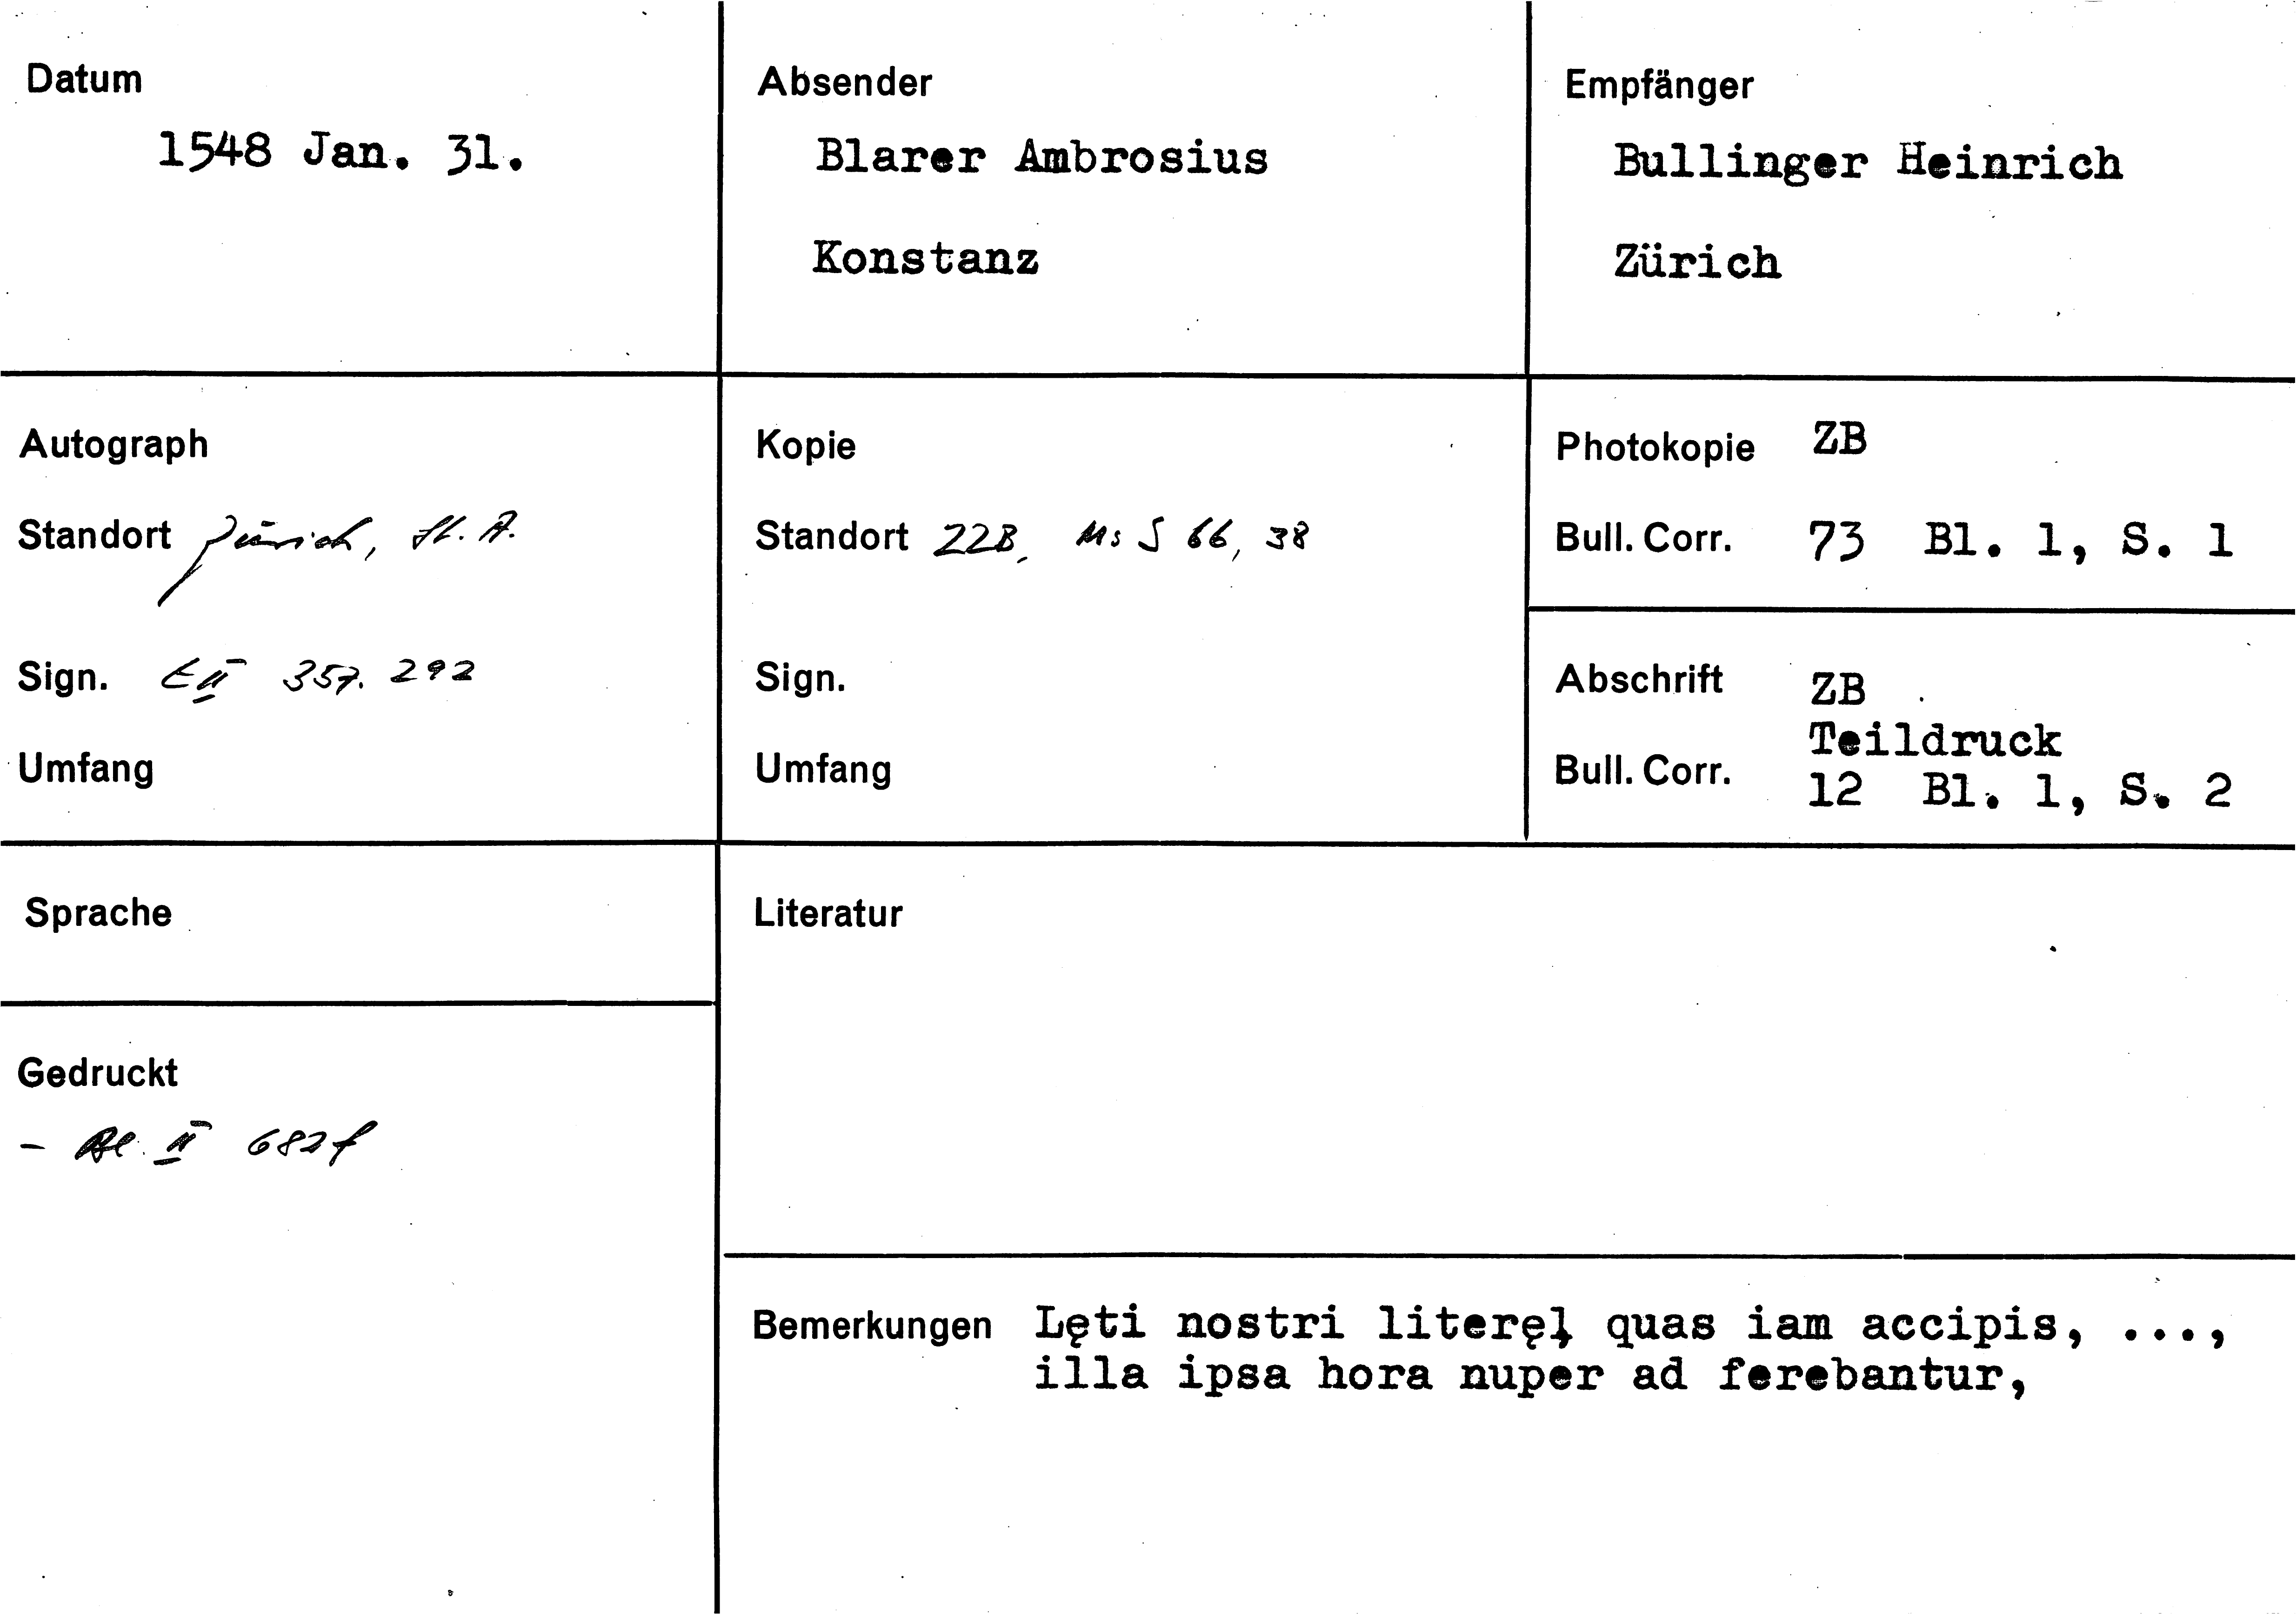 Datum
1548 Jan. 31.
Absender
Blarer Ambrosius
Konstanz
Empfänger
Bullinger Heinrich
Zürich
Autograph
Standort Zürich, St. A.
Sign. E II 357. 292
Umfang
Kopie
Standort ZZB, Ms S 66, 38
Sign.
Umfang
Photokopie ZB
Bull. Corr. 73 Bl. 1, S. 1
Abschrift ZB
Teildruck
Bull. Corr. 12 Bl. 1, S. 2
Sprache
Gedruckt
- Bl. II 682f
Literatur
Bemerkungen Lęti nostri literę, quas iam accipis, ...,
illa ipsa hora nuper ad ferebantur,